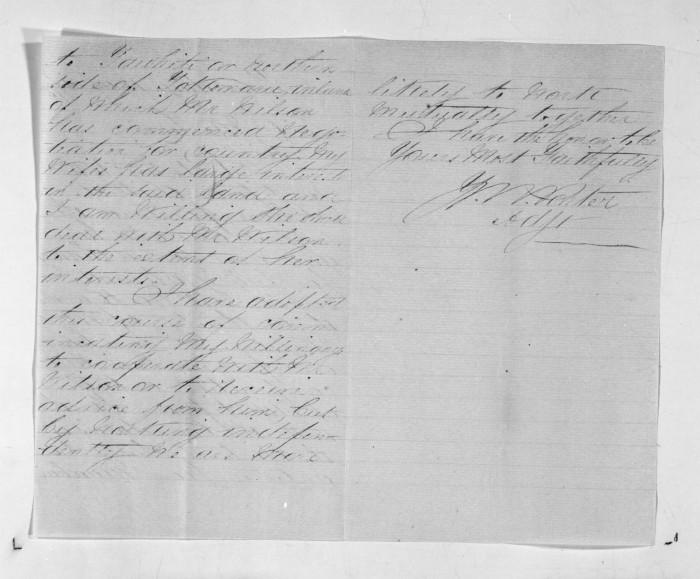 to Tawhiti or northern
side of
of which Mr Wilson
has commenced nego-
tiation or country My
Wife has large interests
in the said land and
I am willing
deal with Mr Wilson
to the extent of her
interests.
I have adopted
this course of comm
unicating my willingness
to cooperate with Mr
Wilson or to receive
advice from him, but
by working indepen
dently we are more
likely to work
mutually together
I have the honor to be
Yours Most Faithfully
J. W. Porter
Adjt